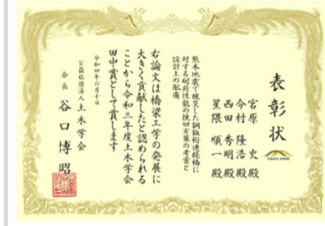 表彰状
宮原 史殿
今村 隆浩殿
西田 秀明殿
星隈 順一殿
熊本地震で被災した鋼鈑桁連続橋に
対する耐荷性能の検証方策の考案と
設計上の配慮
右論文は橋梁工学の発展に
大きく貢献したと認められる
ことから令和三年度土木学会
田中賞として賞します
令和四年六月十日
公益社団法人土木学会
会長 谷口博昭